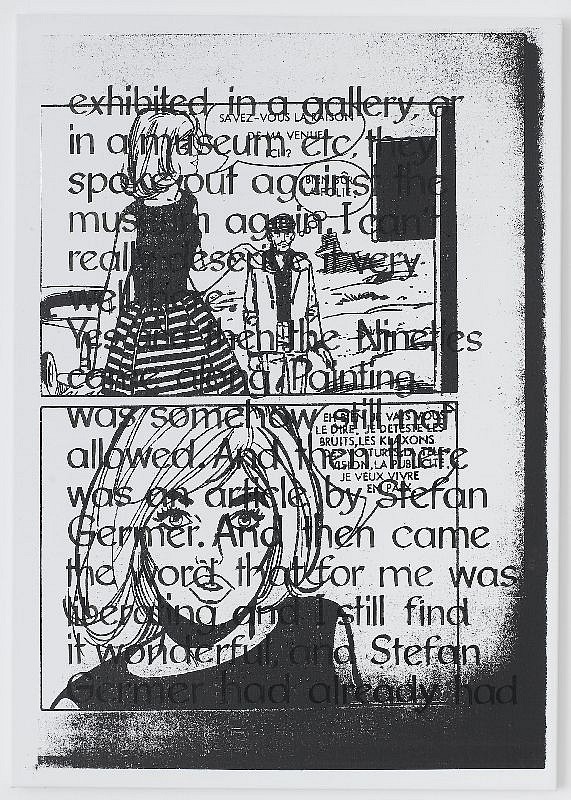 exhibited in a gallery, or
in a museum etc, they
spoke out against the
museum again. I can't
really describe it very
well
Yes and then the Nineties
came along. Painting
was somehow still not
allowed. And then there
was an article by Stefan
Germer. And then came
the word that for me was
liberating and I still find
it wonderful, and Stefan
Germer had already had
SAVEZ-VOUS LA RAISON
DE MA VENUE
ICI?
BIEN SÛR
EH BIEN JE VAIS VOUS
LE DIRE. JE DETESTE LES
BRUITS, LES KLAXONS
DES VOITURES, LA TELE-
VISION, LA PUBLICITE.
JE VEUX VIVRE
EN PAIX